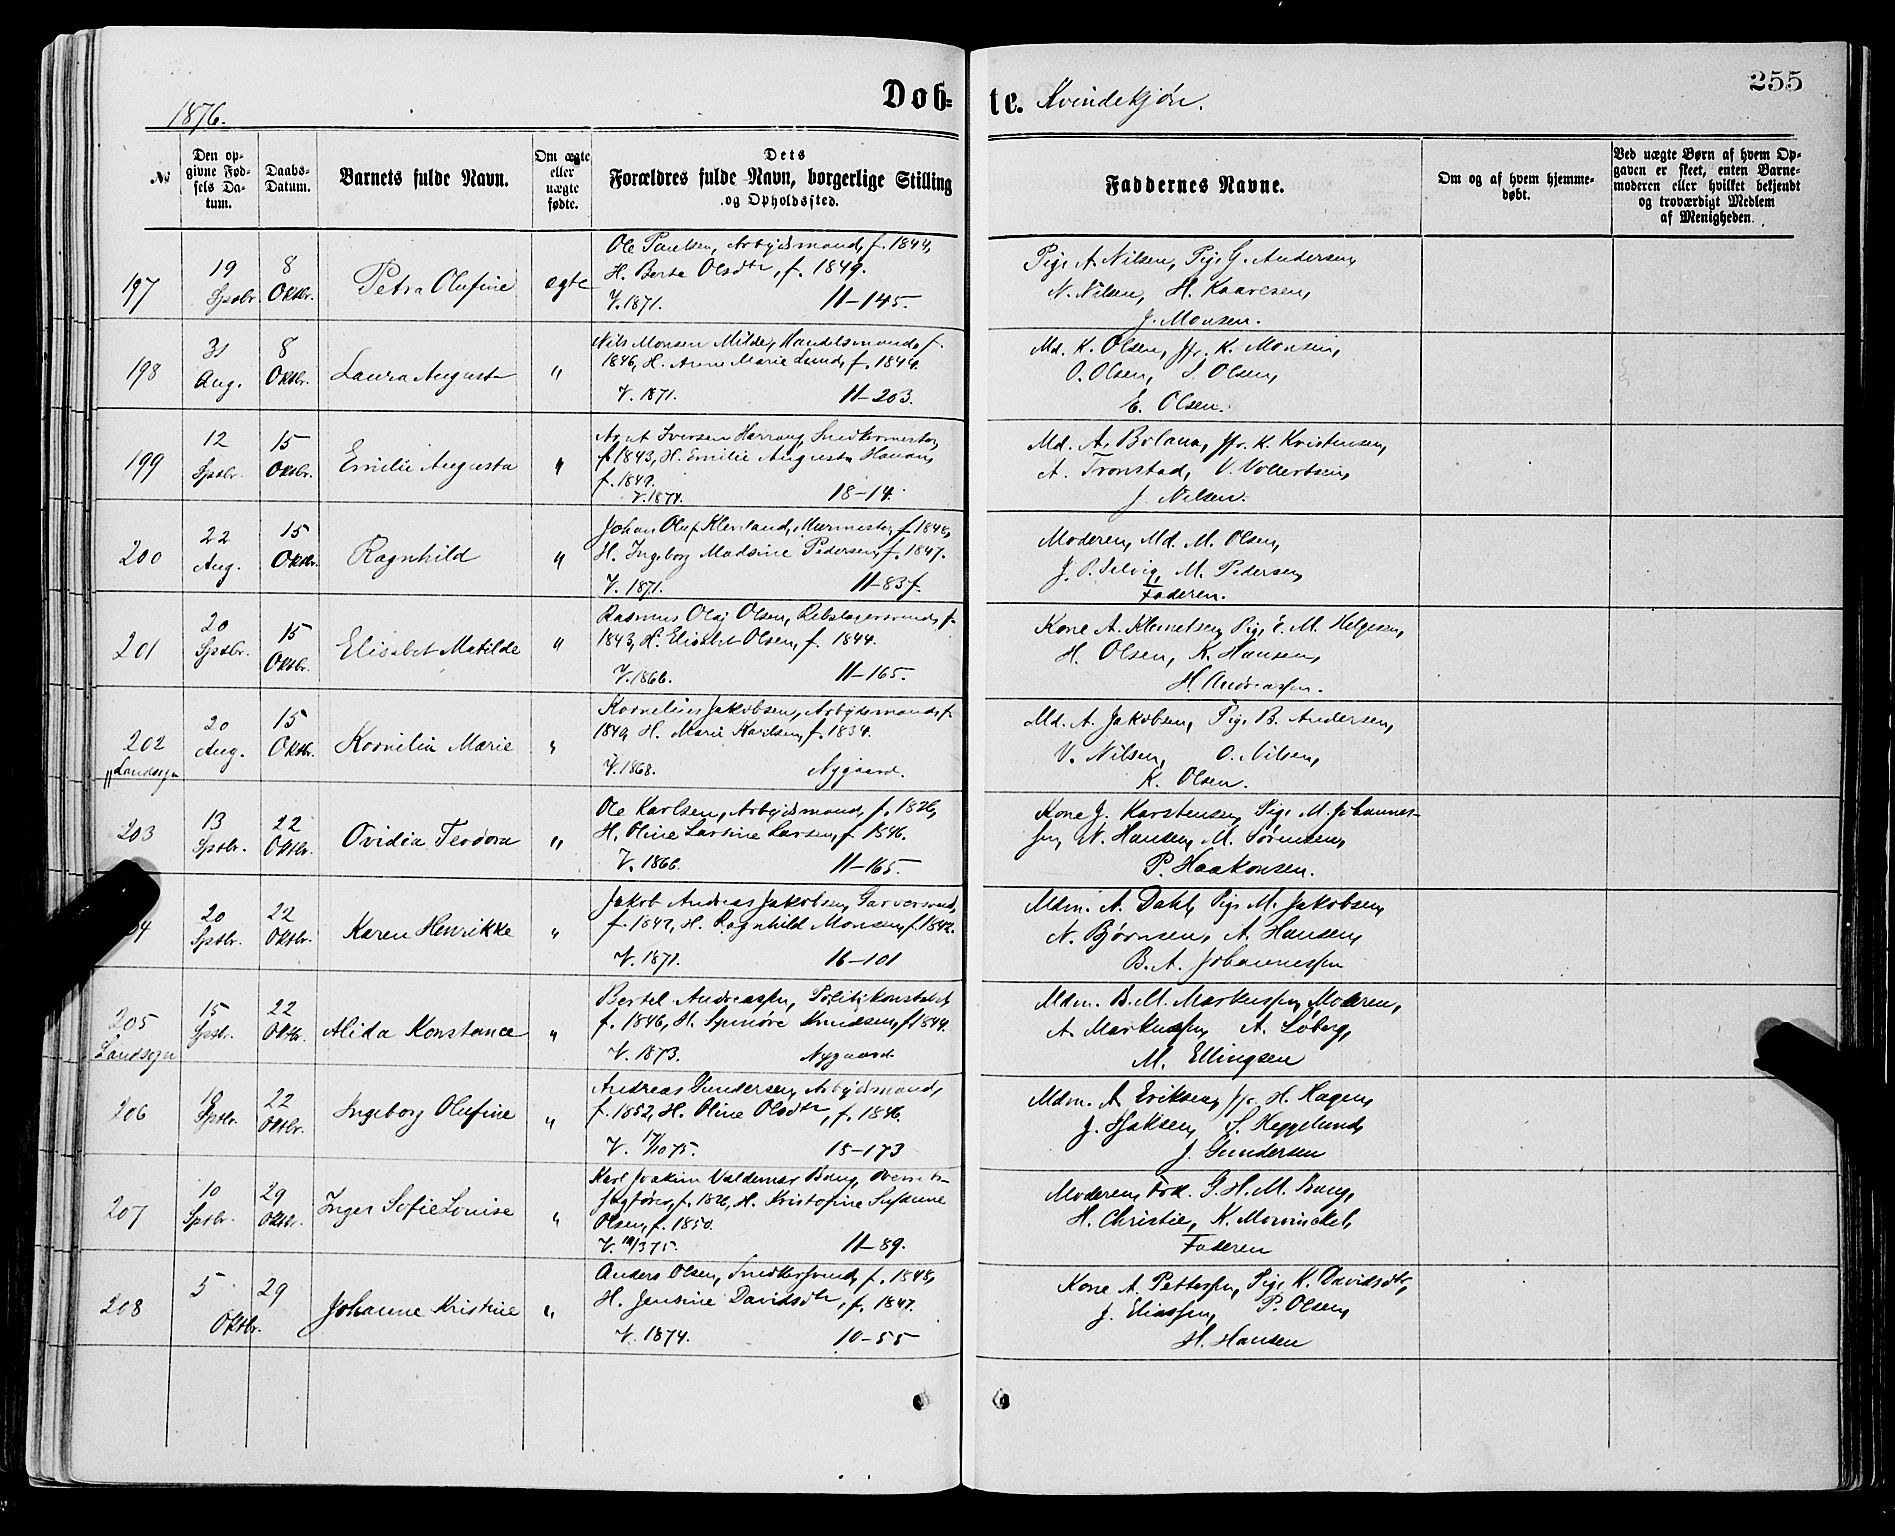 255
1876.
Døb-
te. Kvindekjøn.
№
Den op-
givne Fød-
sels Da-
tum.
Daabs-
Datum.
Barnets fulde Navn.
Om ægte
eller
uægte
fødte.
Dets
Forældres fulde Navn, borgerlige Stilling
og Opholdssted.
Faddernes Navne.
Om og af hvem hjemme-
døbt.
Ved uægte Børn af hvem Op-
gaven er skeet, enten Barne-
moderen eller hvilket bekjendt
og troværdigt Medlem
af Menigheden.
197
19
Sptbr.
8
Oktbr.
Petra Olufine
egte
Ole Paulsen, Arbejdsmand, f. 1844,
H. Berta Olsdtr, f. 1849.
V. 1871. 11-145.
Pige A. Nilsen, Pige G. Andersen,
N. Nilsen, H. Kaaresen,
J. Monsen.
198
31
Aug.
8
Oktbr.
Laura Augusta
"
Nils Monsen Milde, Handelsmand, f.
1846, H. Anne Marie Lund, f. 1844.
V. 1871. 11-203.
Md. K. Olsen, Jfr. K. Monsen,
O. Olsen, I. Olsen,
E. Olsen.
199
12
Sptbr.
15
Oktbr.
Emilie Augusta
"
Iversen Harrang, Snedkermester,
f. 1843, H. Emilie Augusta
f. 1849.
V. 1874. 18-14.
Md. A. Jfr. K. Kristensen,
A. Tronstad, V. Vollertsen,
J. Nilsen.
200
22
Aug.
15
Oktbr.
Ragnhild
"
Johan Oluf Klevland, Murmester, f. 1848,
H. Ingeborg Madsine Pedersen, f. 1847.
V. 1871. 11-83f.
Moderen, Md. M. Olsen,
J. P. Selvig, M. Pedersen,
Faderen.
201
20
Sptbr.
15
Oktbr.
Elisabet Matilde
"
Rasmus Olaj Olsen, Rebslagersvend, f.
1843, H. Elisabet Olsen, f. 1844.
V. 1866. 11-165.
Kone A. Klemetsen, Pige E. M. Helgesen,
H. Olsen, K. Hansen,
H. Andreassen.
202
"Landsogn
20
Aug.
15
Oktbr.
Kornelia Marie
"
Kornelius Jakobsen, Arbejdsmand, f.
1849, H. Marie Karlsen, f. 1834.
V. 1868. Nygaard.
Md. A. Jakobsen, Pige B. Andersen,
V. Nilsen, O. Nilsen,
K. Olsen.
203
13
Sptbr.
22
Oktbr.
Ovidia Teodora
"
Ole Karlsen, Arbejdsmand, f. 1826,
H. Oline Larsine Larsen, f. 1846.
V. 1866. 11-165.
Kone J. Karstensen, Pige M. Johannes-
sen, N. Hansen, M. Sørensen,
P. Haakonsen.
4
20
Sptbr.
22
Oktbr.
Karen Henrikke
"
Jakob Andreas Jakobsen, Garversvend,
f. 1847, H. Ragnhild Monsen, f. 1842.
V. 1871. 16-101
Mdm. A. Dahl, Pige M. Jakobsen,
N. Bjørnsen, A. Hansen,
B. A. Johannessen
205
Landsogn
15
Sptbr.
22
Oktbr.
Alida Konstance
"
Bertel Andreassen, Politikonstabel,
f. 1846, H. Synnøve Knudsen, f. 1844.
V. 1873. Nygaard
Mdm. B. M. Markussen, Moderen,
A. Markussen, A. Søberg,
M. Ellingsen
206
18
Sptbr.
22
Oktbr.
Ingeborg Olufine
"
Andreas Gundersen, Arbejdsmand,
f. 1852, H. Oline Olsdtr, f. 1846.
V. 17/10 75. 15-173
Mdm. A. Eriksen, Jfr. H. Hagen,
J. Isaksen, S. Heggelund,
J. Gundersen
207
10
Sptbr.
29
Oktbr.
Inger Sofie Louise
"
Karl Joakim Valdemar Bang, Overrets-
sagfører, f. 1826, H. Kristofine Susanne
Olsen, f. 1850.
V. 19/3 75. 11-89.
Moderen, Frk. G. H. M. Bang,
H. Christie, K. Mowinckel,
Faderen
208
5
29
Oktbr.
Johanne Kristine
"
Anders Olsen, Snedkersvend, f. 1848,
H. Jensine Davidsdtr, f. 1847.
V. 1874. 10-55
Kone A. Pettersen, Pige K. Davidsdtr,
J. Eliassen, P. Olsen,
H. Hansen